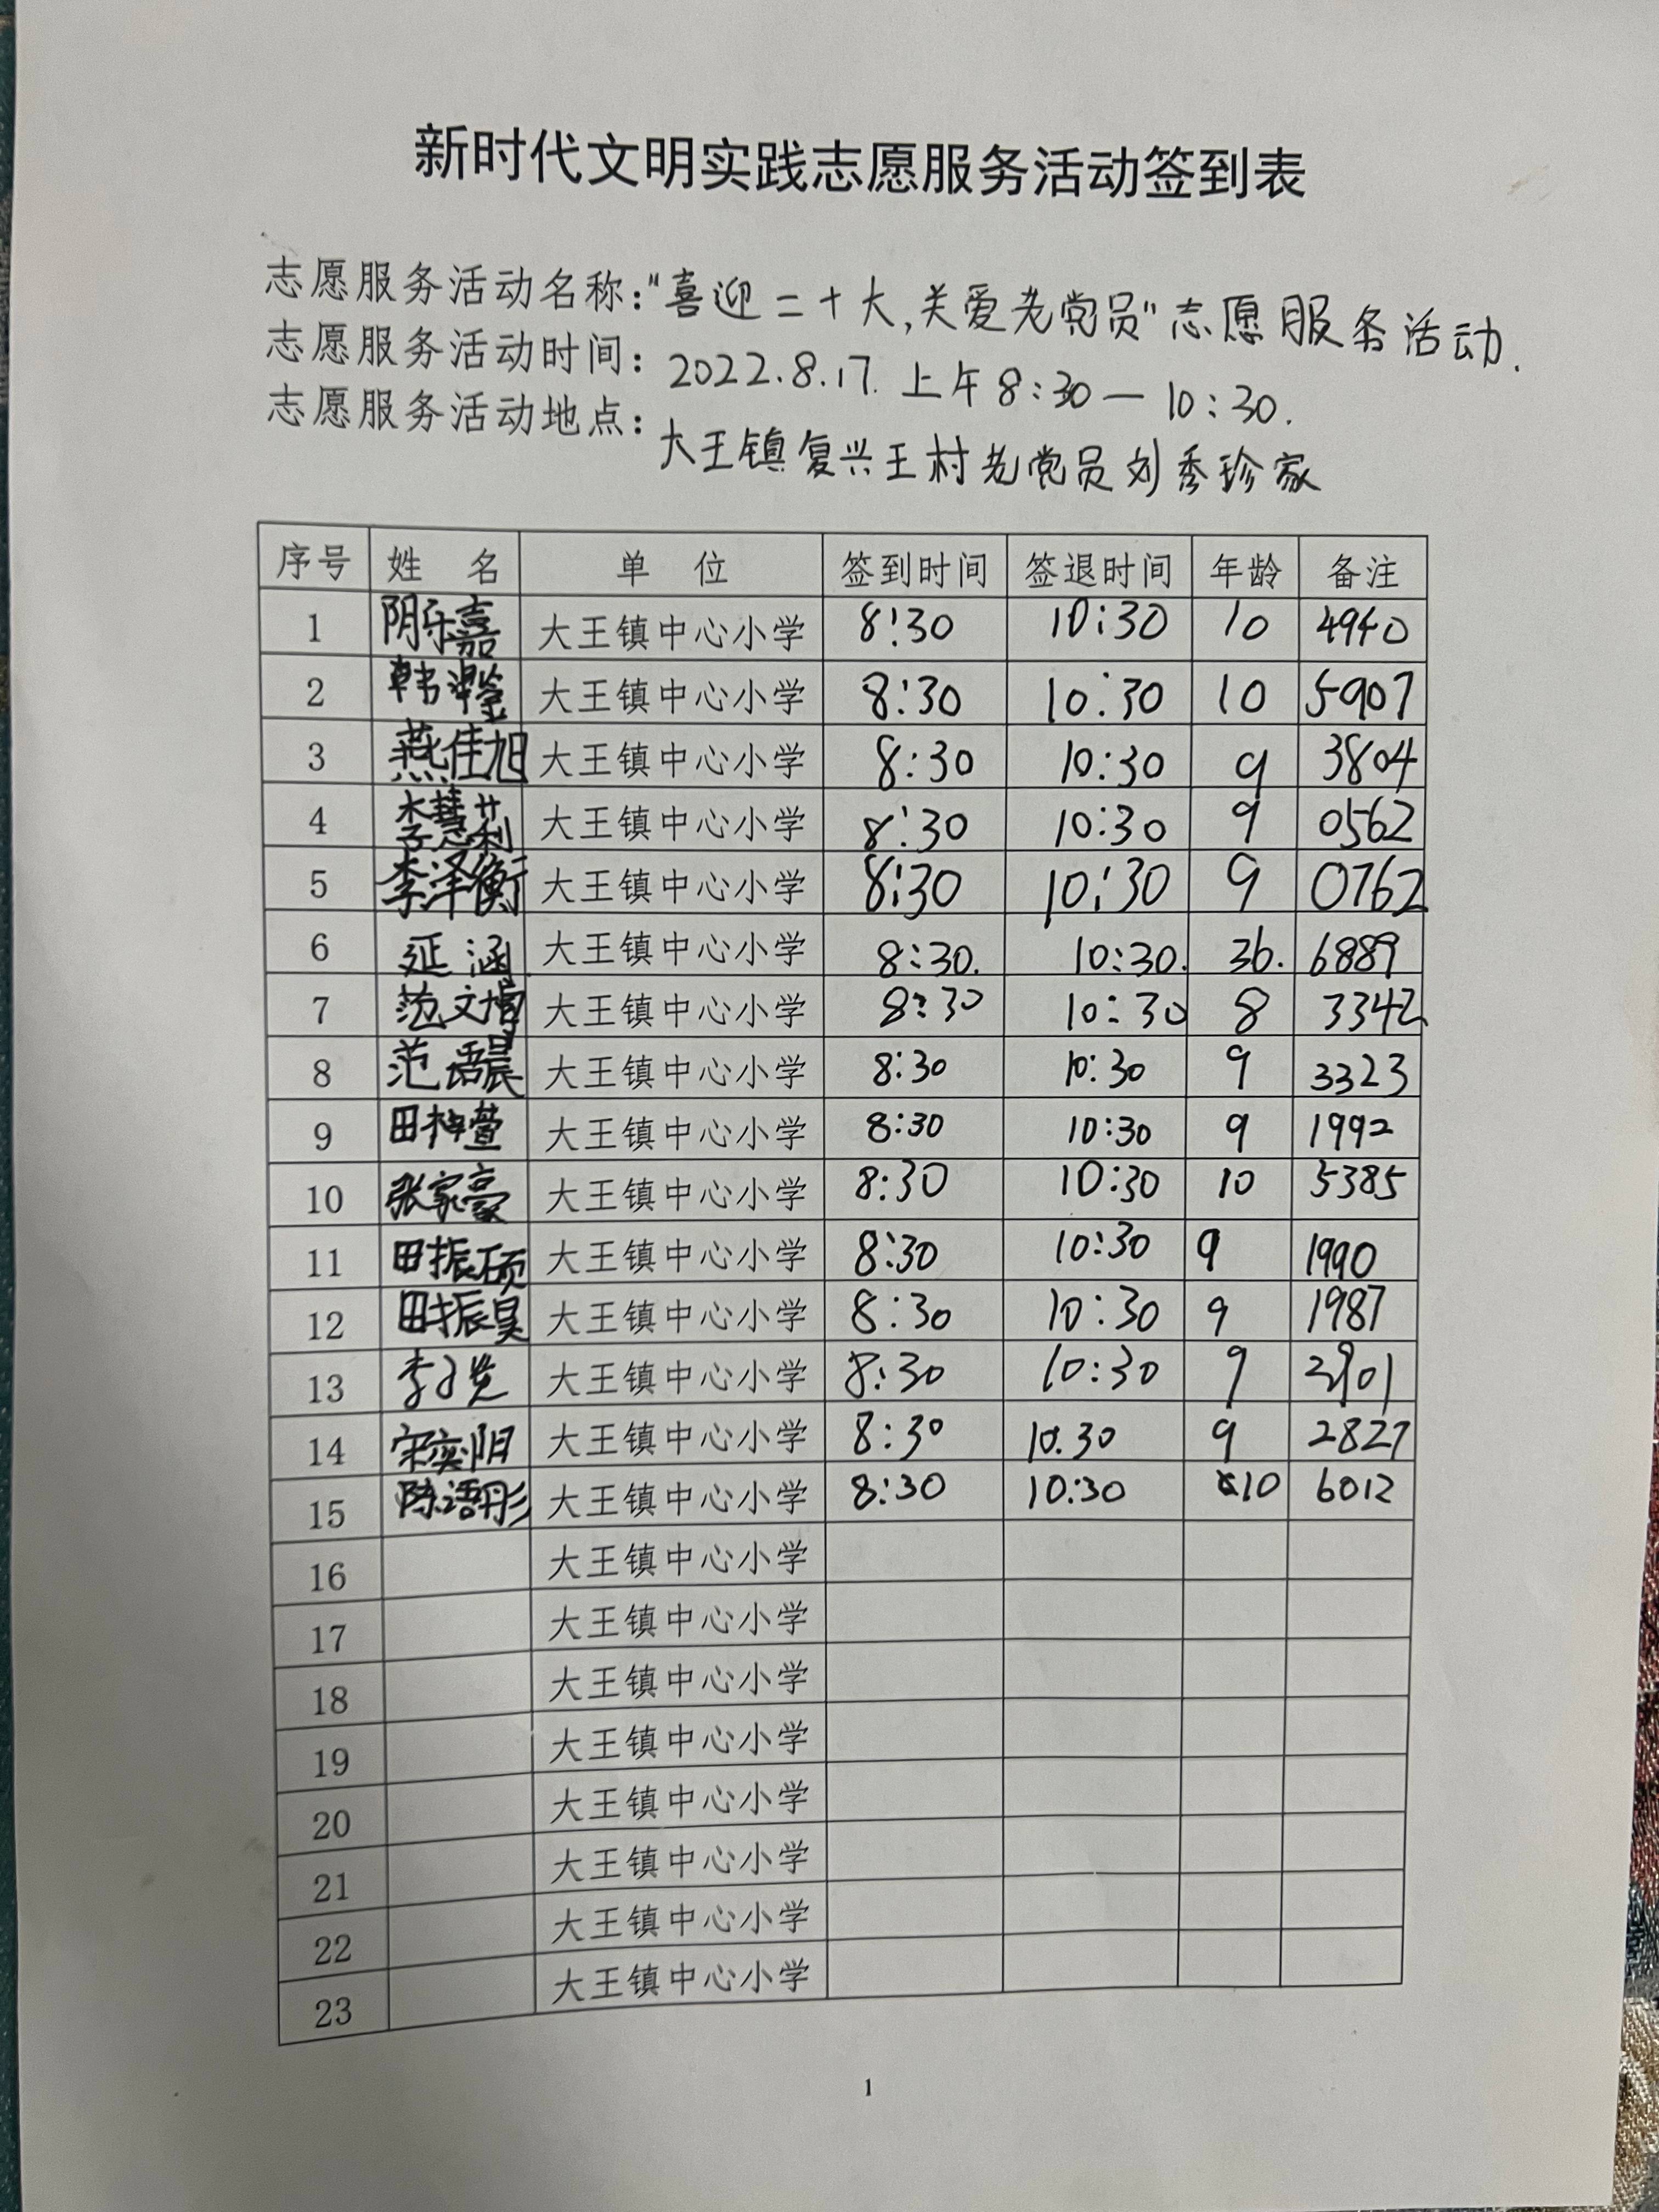 新时代文明实践志愿服务活动签到表
志愿服务活动名称:"喜迎二十大,关爱老党员"志愿服务活动.
志愿服务活动时间: 2022.8.17. 上午8:30—10:30.
志愿服务活动地点: 大王镇复兴王村老党员刘秀珍家
序号 姓 名 单 位 签到时间 签退时间 年龄 备注
1 阴乐嘉 大王镇中心小学 8:30 10:30 10 4940
2 韩 大王镇中心小学 8:30 10:30 10 5907
3 燕佳旭 大王镇中心小学 8:30 10:30 9 3804
4 李慧莉 大王镇中心小学 8:30 10:30 9 0562
5 李泽衡 大王镇中心小学 8:30 10:30 9 0762
6 延涵 大王镇中心小学 8:30. 10:30. 36. 6889
7 范文增 大王镇中心小学 8:30 10:30 8 3342
8 范语晨 大王镇中心小学 8:30 10:30 9 3323
9 田梓萱 大王镇中心小学 8:30 10:30 9 1992
10 张家豪 大王镇中心小学 8:30 10:30 10 5385
11 田振硕 大王镇中心小学 8:30 10:30 9 1990
12 田振昊 大王镇中心小学 8:30 10:30 9 1987
13 李 大王镇中心小学 8:30 10:30 9
14 宋奕阳 大王镇中心小学 8:30 10.30 9 2827
15 陈语彤 大王镇中心小学 8:30 10:30 10 6012
16 大王镇中心小学
17 大王镇中心小学
18 大王镇中心小学
19 大王镇中心小学
20 大王镇中心小学
21 大王镇中心小学
22 大王镇中心小学
23 大王镇中心小学
1